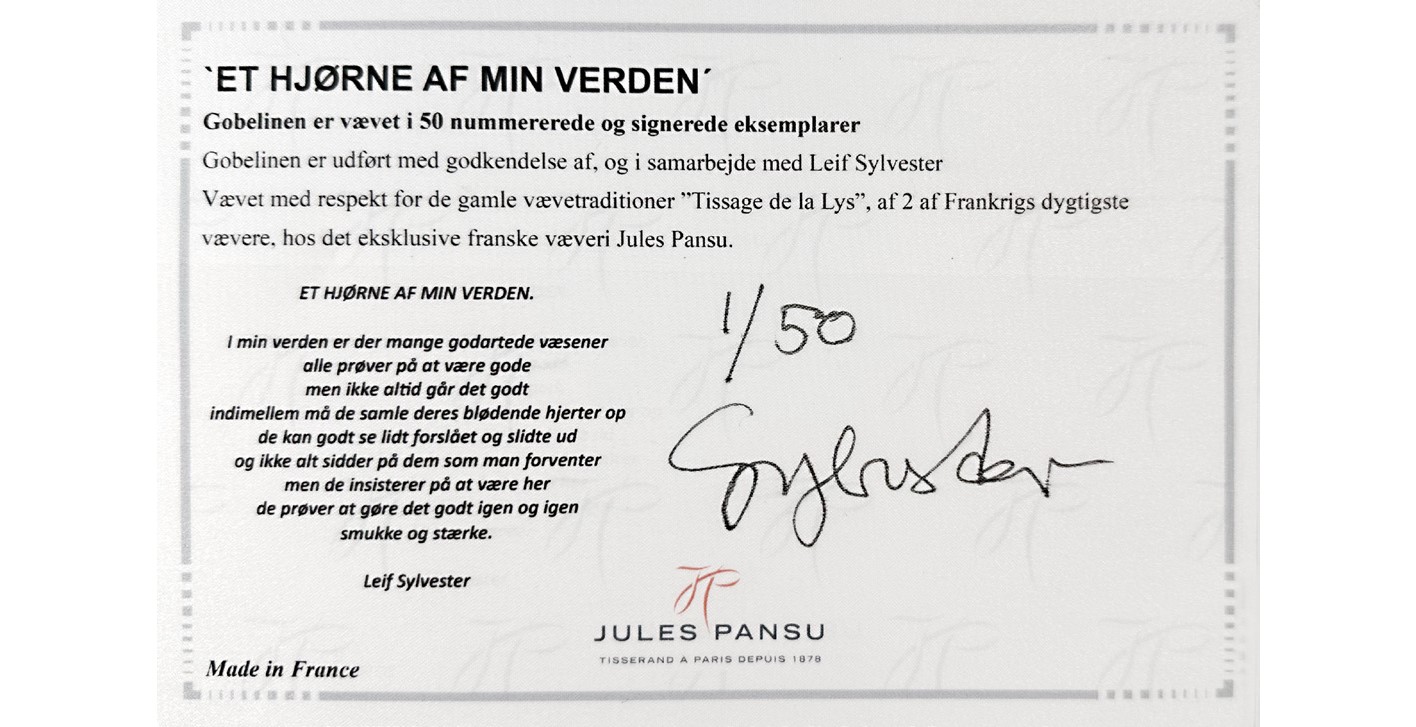 `ET HJØRNE AF MIN VERDEN´
Gobelinen er vævet i 50 nummererede og signerede eksemplarer
Gobelinen er udført med godkendelse af, og i samarbejde med Leif Sylvester
Vævet med respekt for de gamle vævetraditioner ”Tissage de la Lys”, af 2 af Frankrigs dygtigste
vævere, hos det eksklusive franske væveri Jules Pansu.
ET HJØRNE AF MIN VERDEN.
I min verden er der mange godartede væsener
alle prøver på at være gode
men ikke altid går det godt
indimellem må de samle deres blødende hjerter op
de kan godt se lidt forslået og slidte ud
og ikke alt sidder på dem som man forventer
men de insisterer på at være her
de prøver at gøre det godt igen og igen
smukke og stærke.
Leif Sylvester
1/50
Sylvester
JP
JULES PANSU
TISSERAND A PARIS DEPUIS 1878
Made in France